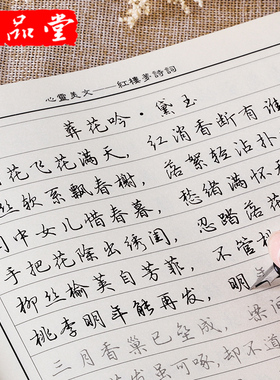 品堂
心靈美文——紅樓夢詩詞
葬花吟·黛玉
花飞花满天，红消香断有谁
丝软系飘春榭，落絮轻沾扑
中女儿惜春暮，愁绪满怀
手把花除出绣闺，忍踏落花
柳丝榆荚自芳菲，不管桃
桃李明年能再发，明年
三月香巢已垒成，梁
虽可啄，却不道